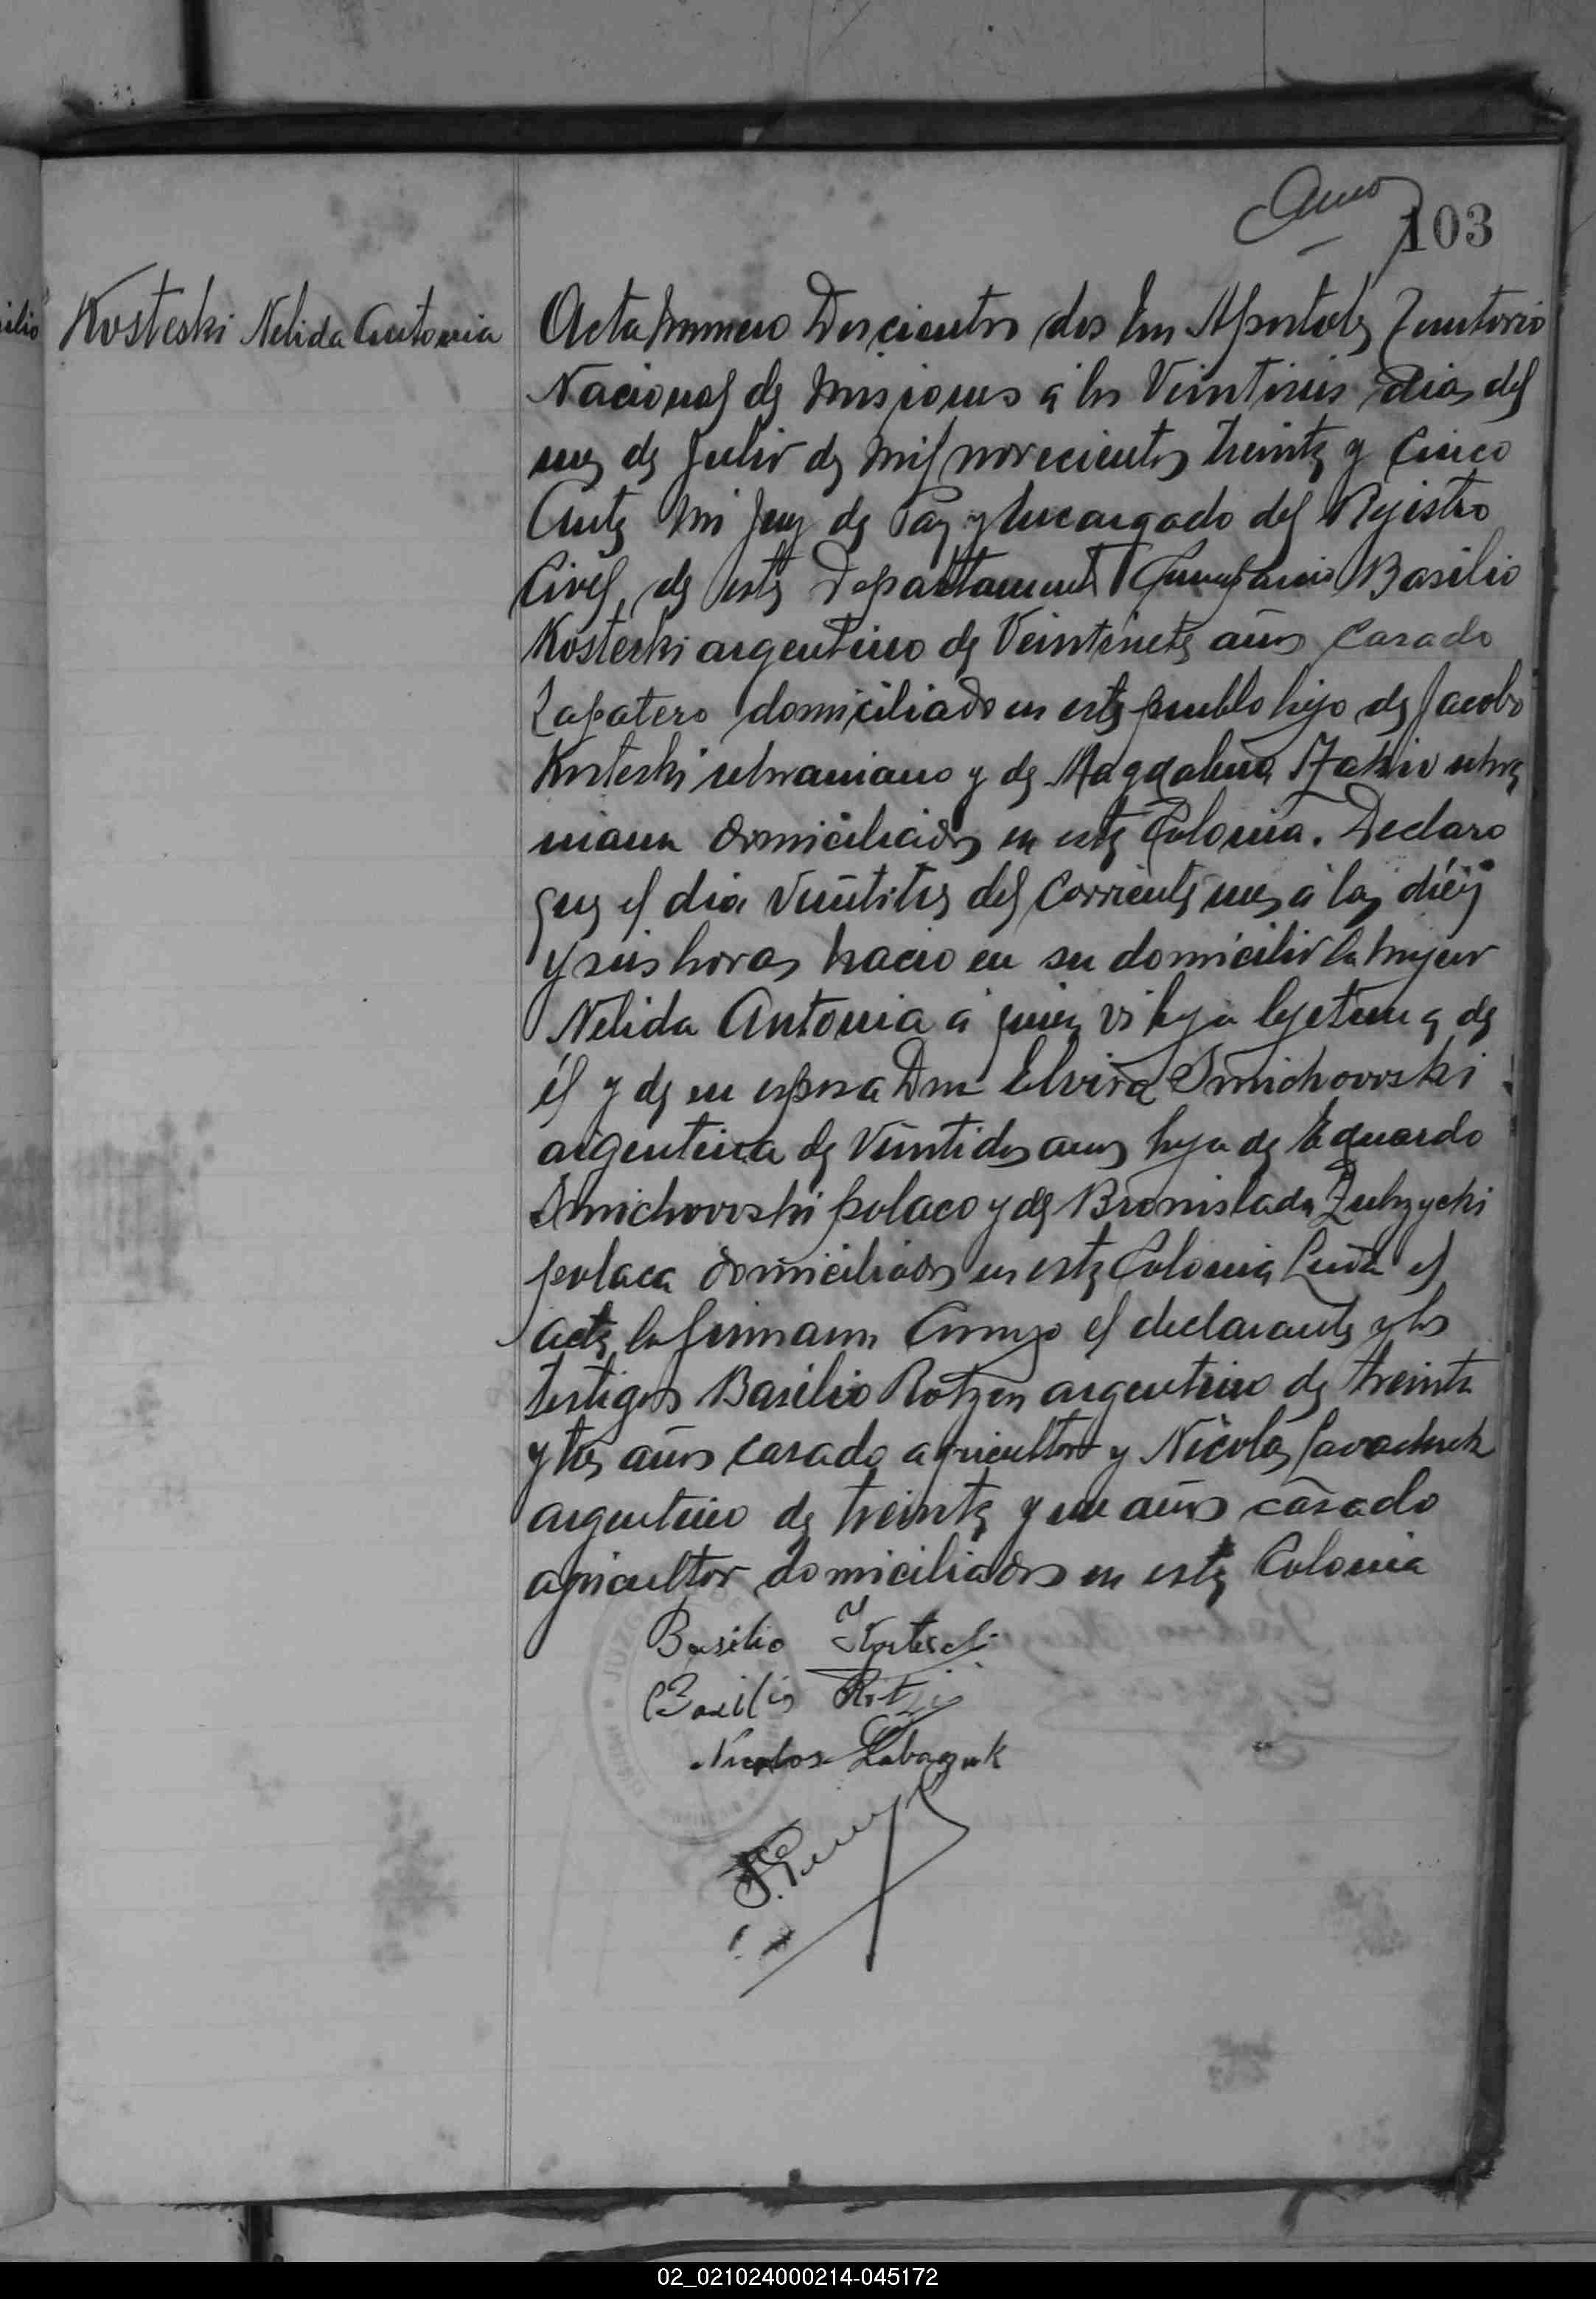 103
Kosteski Nelida Antonia
Acta numero Doscientos dos En Apostoles Territorio
Nacional de Misiones a los Veintiseis dias del
mes de Julio de mil novecientos treinta y cinco
Ante mi Juez de Paz y Encargado del Rejistro
Civil, de este Departamento Compareció Basilio
Kosteski argentino de Veintisiete años casado
Zapatero domiciliado en este pueblo hijo de Jacobo
Kosteski ukraniano y de Magdalena ukra
niana domiciliados en esta Colonia. Declaro
que el dia Veintitres del corriente mes a las diéz
y seis horas nacio en su domicilio la mujer
Nelida Antonia a quien vi hija lejetima de
él y de su esposa Dna Elvira Smichovoski
argentina de Veintidos anos hija de Eduardo
Smichovoski polaco y de Bronislada Zubzycki
polaca domiciliados en esta Colonia Leida el
acta la firmaron Conmigo el declarante y los
testigos Basilio Rotzen argentino de treinta
y tres años casado agricultor y Nicolás
argentino de treinta y un años casado
agricultor domiciliados en esta Colonia
Basilio Kosteski
Basilio
Nicolas Labazuk
02_021024000214-045172